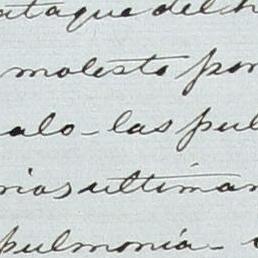 ataque del h
molesto por
alo - las pul
rias ultimam
pulmonia -